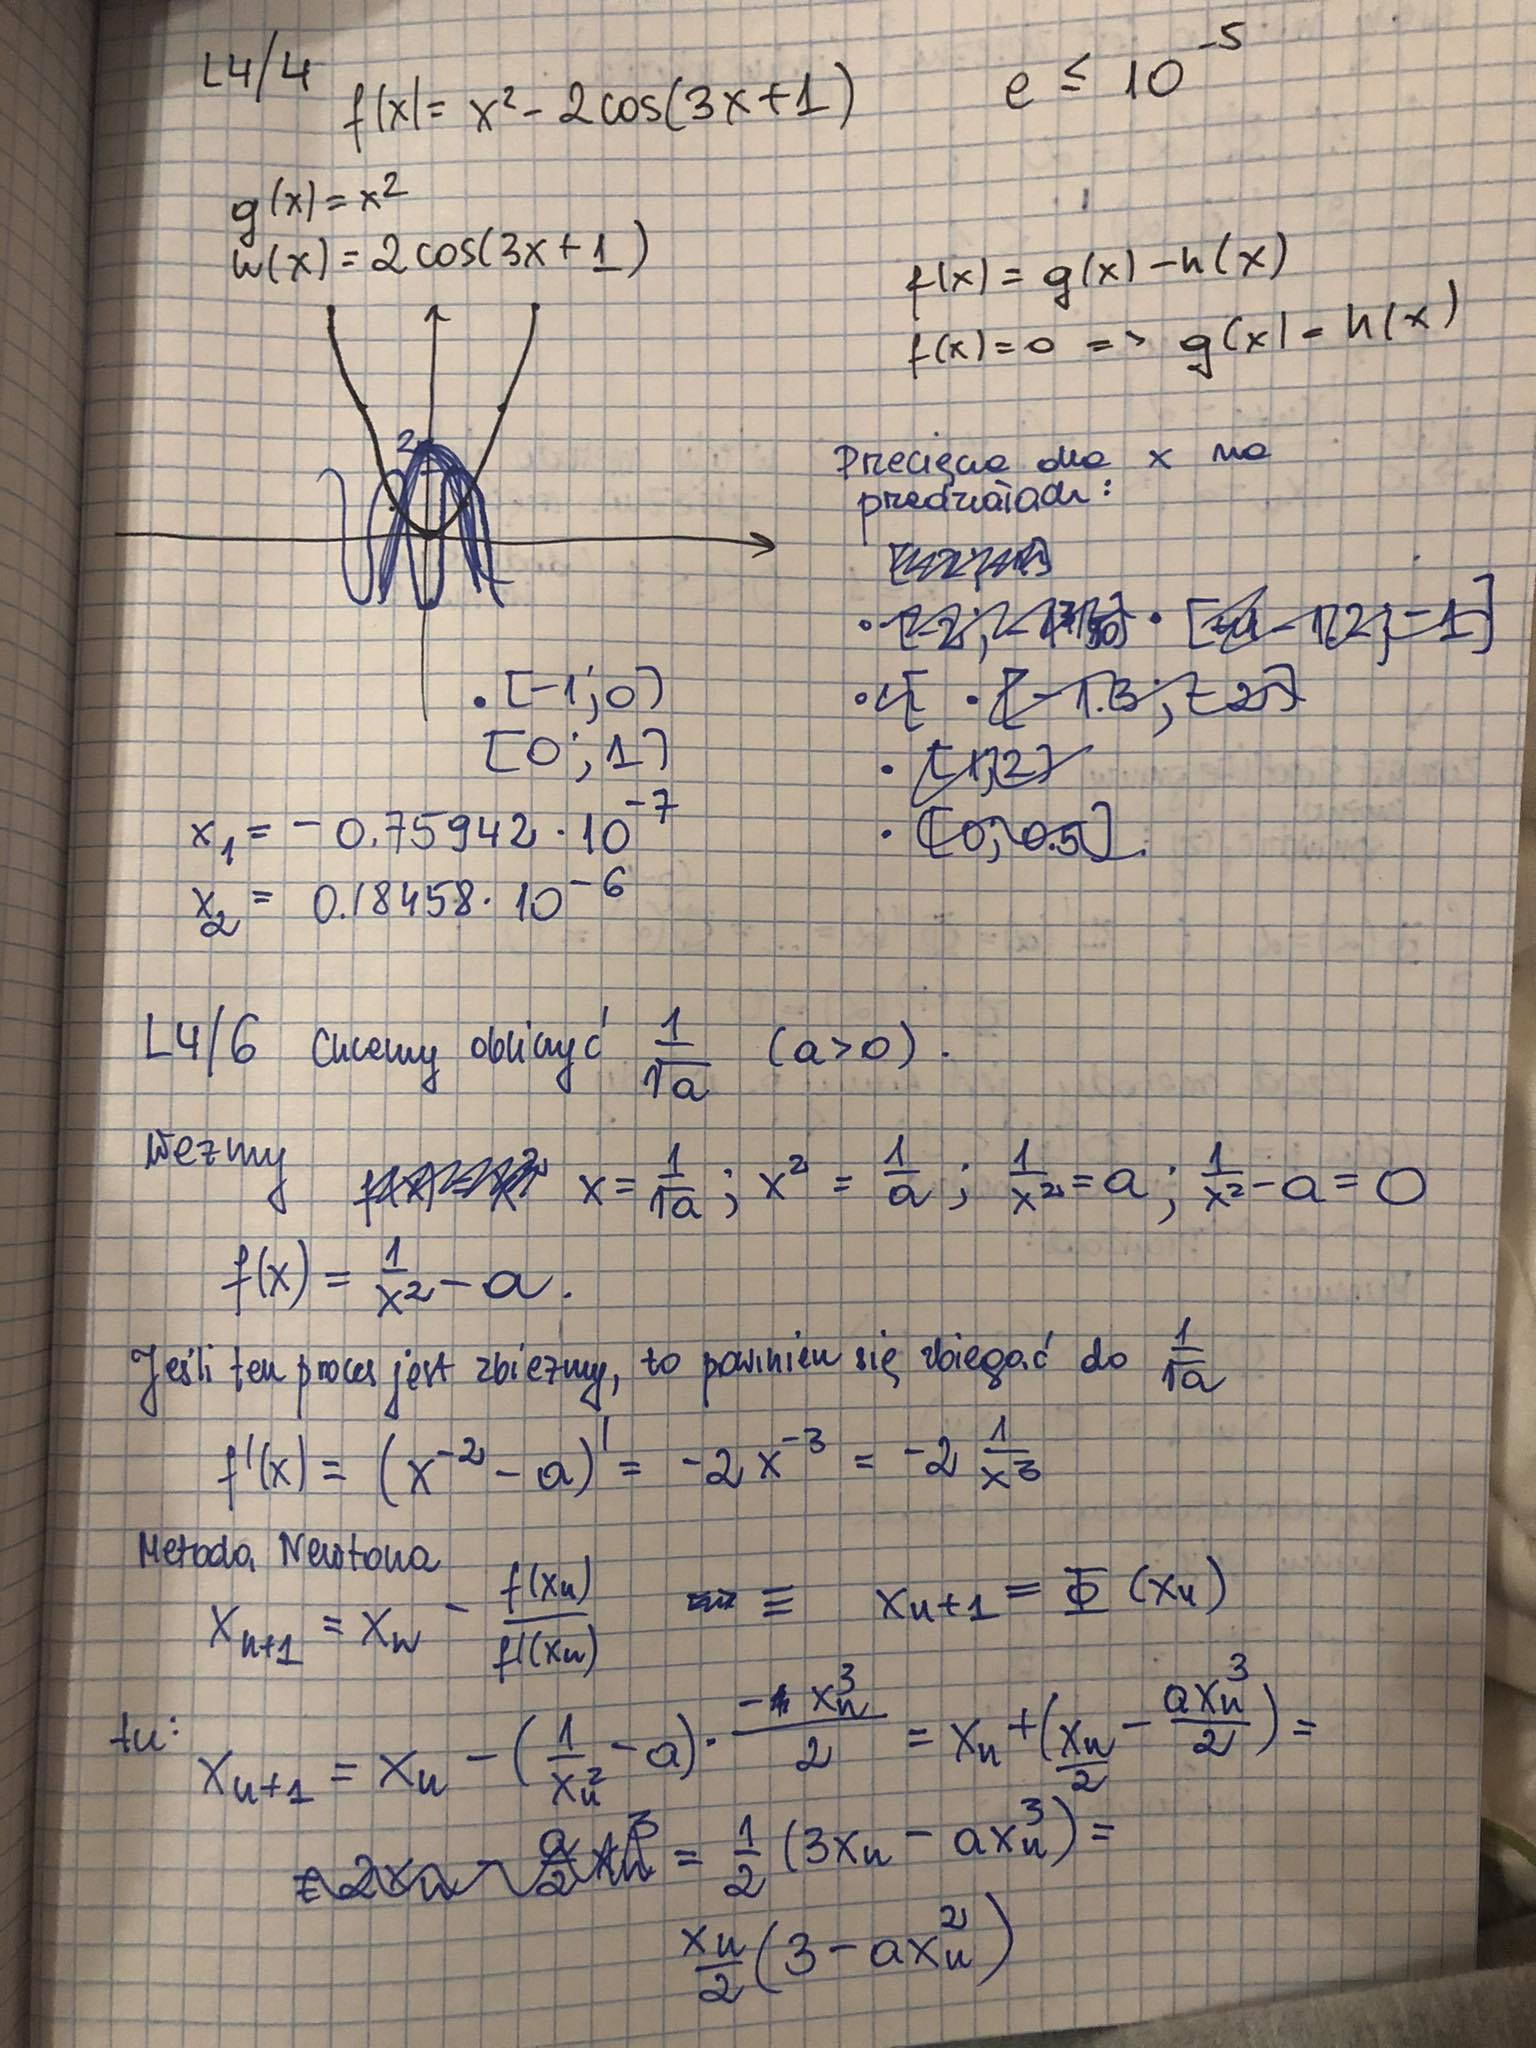 L4/4
f(x) = x² - 2cos(3x+1) e ≤ 10⁻⁵
g(x) = x²
h(x) = 2cos(3x+1)
f(x) = g(x) - h(x)
f(x) = 0 => g(x) = h(x)
2
Przecięcia dla x na
przedziałach:
• [-1; 0]
[0; 1]
x₁ = -0.75942 · 10⁻⁷
x₂ = 0.18458 · 10⁻⁶
• [1,2]
• [0; 0.5].
L4/6 Chcemy obliczyć 1/√a (a>0).
Weźmy x = 1/√a ; x² = 1/a ; 1/x² = a ; 1/x² - a = 0
f(x) = 1/x² - a.
Jeśli ten proces jest zbieżny, to powinien się zbiegać do 1/√a
f'(x) = (x⁻² - a)' = -2x⁻³ = -2 1/x³
Metoda Newtona
xₙ₊₁ = xₙ - f(xₙ)/f'(xₙ) ≡ xₙ₊₁ = Φ(xₙ)
tu:
xₙ₊₁ = xₙ - (1/xₙ² - a) · -xₙ³/2 = xₙ + (xₙ/2 - axₙ³/2) =
= 1/2 (3xₙ - axₙ³) =
xₙ/2 (3 - axₙ²)